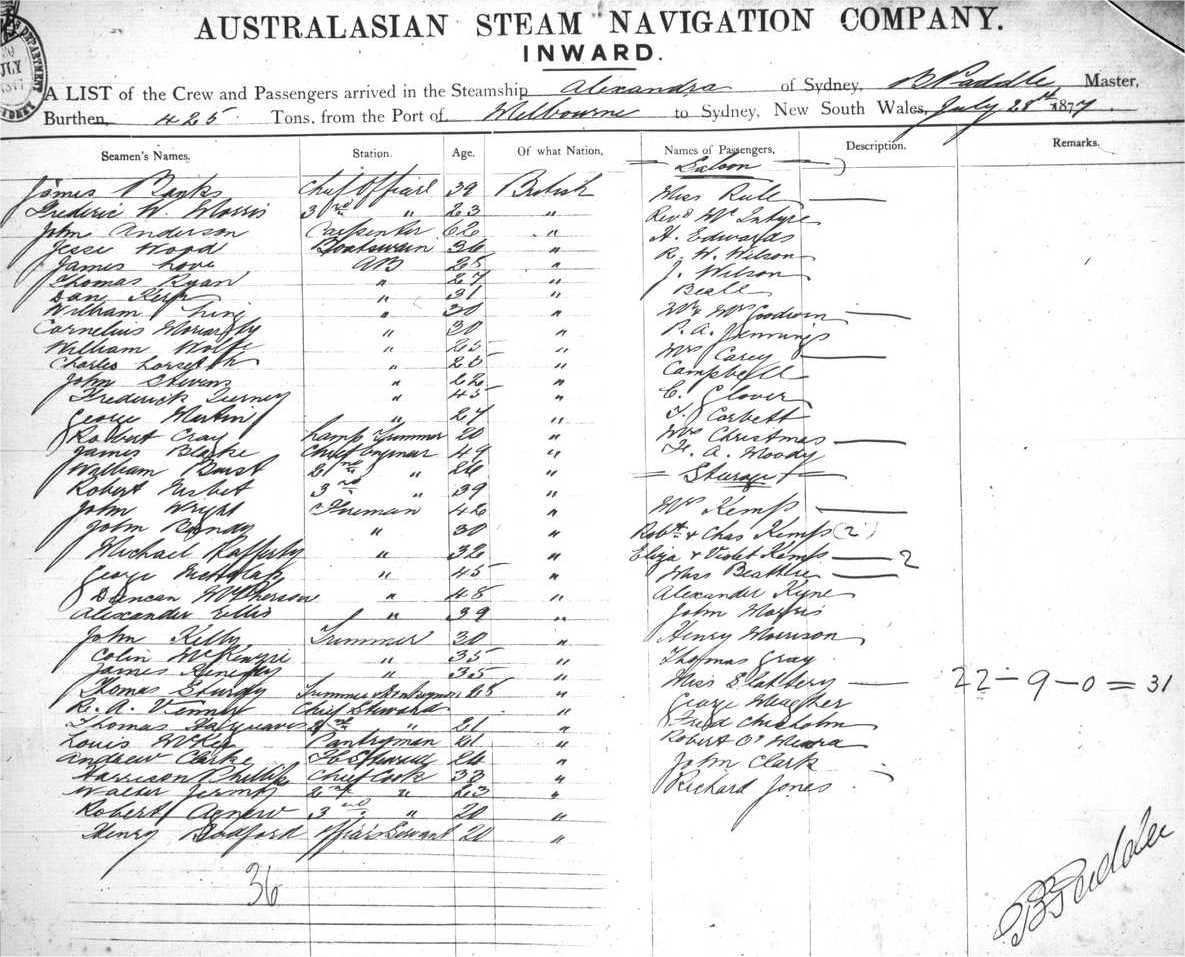 AUSTRALASIAN STEAM NAVIGATION COMPANY.
INWARD.
JULY
A LIST of the Crew and Passengers arrived in the Steamship Alexandra of Sydney, B Paddle Master,
Burthen, 425 Tons, from the Port of Melbourne to Sydney, New South Wales, July 28th 1877
Seamen's Names. Station. Age. Of what Nation, Names of Passengers, Description. Remarks.
Saloon
James Banks Chief Officer 39 British Miss Rull
Frederic W. Morris 3rd " 23 " Revd Mc Intyre
John Anderson Carpenter 62 " H. Edwards
Jesse Wood Boatswain 36 " R. W. Wilson
James Love AB 25 " J. Wilson
Thomas Ryan " 27 " Beall
Dan Kerr " 31 "
William King " 30 " Mr & Mrs Goodwin
Cornelius Moriarty " 30 " P. A. Jennings
William Wolfe " 25 " Mrs Carey
Charles " 25 " Campbell
John Stevens " 22 " C. Glover
Frederick Tierney " 45 "
George Martin " 27 " T. Corbett
Robert Cray Lamp Trimmer 20 " Mrs Christmas
James Blake Chief Engineer 49 " F. A. Moody
William Burst 2nd " 26 " Steerage
Robert Nisbet 3rd " 39 "
John Wright Fireman 42 " Mrs Kemp
John Bandy " 30 " Robt & Chas Kemp (2)
Michael Rafferty " 32 " Eliza & Violet Kemp 2
George Nicholas " 45 " Miss Beattie
Duncan McPherson " 48 " Alexander Kyne
Alexander Ellis " 39 " John Morris
John Kelly Trimmer 30 " Henry Morrison
Colin McKenzie " 35 " Thomas Gray
James " 35 " Miss Slattery 22 - 9 - 0 = 31
Thomas Sturdy Trimmer & 25 " George Meagher
R. A. Venner Chief Steward " Fred Chisholm
Thomas Hargraves 2nd " 21 " Robert O'Meara
Louis McKey Pantryman 21 "
Andrew Clarke F C Steward 24 " John Clark
Harrison Phillip Chief Cook 33 " Richard Jones
Walter 2nd " 23 "
Robert Agnew 3rd " 20 "
Henry Bodford Officer's Servant 20 "
36
B Paddle